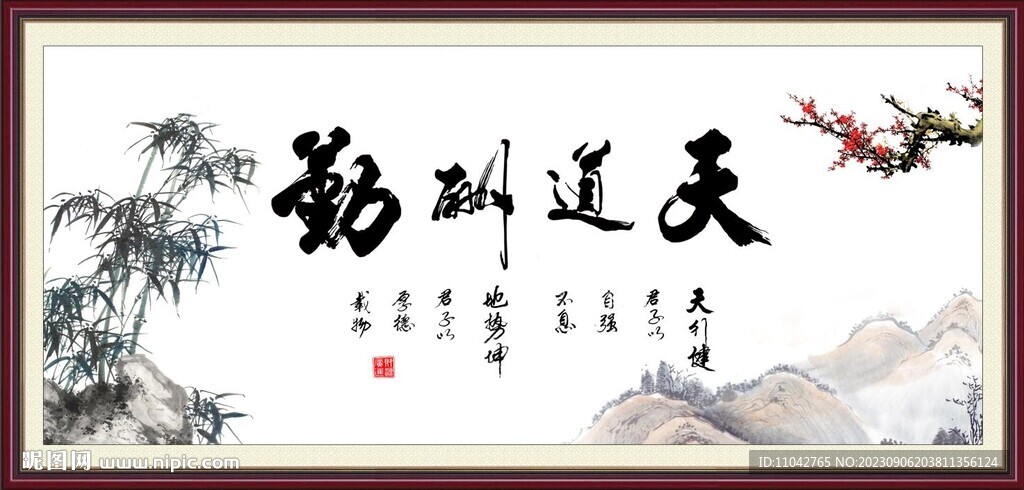 天道酬勤
天行健
君子以
自强
不息
地势坤
君子以
厚德
载物
昵图网 www.nipic.com
ID:11042765 NO:20230906203811356124